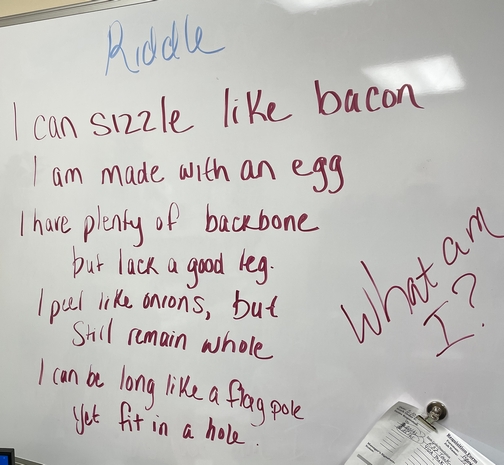 Riddle
I can sizzle like bacon
I am made with an egg
I have plenty of backbone
but lack a good leg.
I peel like onions, but
Still remain whole
I can be long like a flag pole
Yet fit in a hole.
What am
I?
Requisition Form